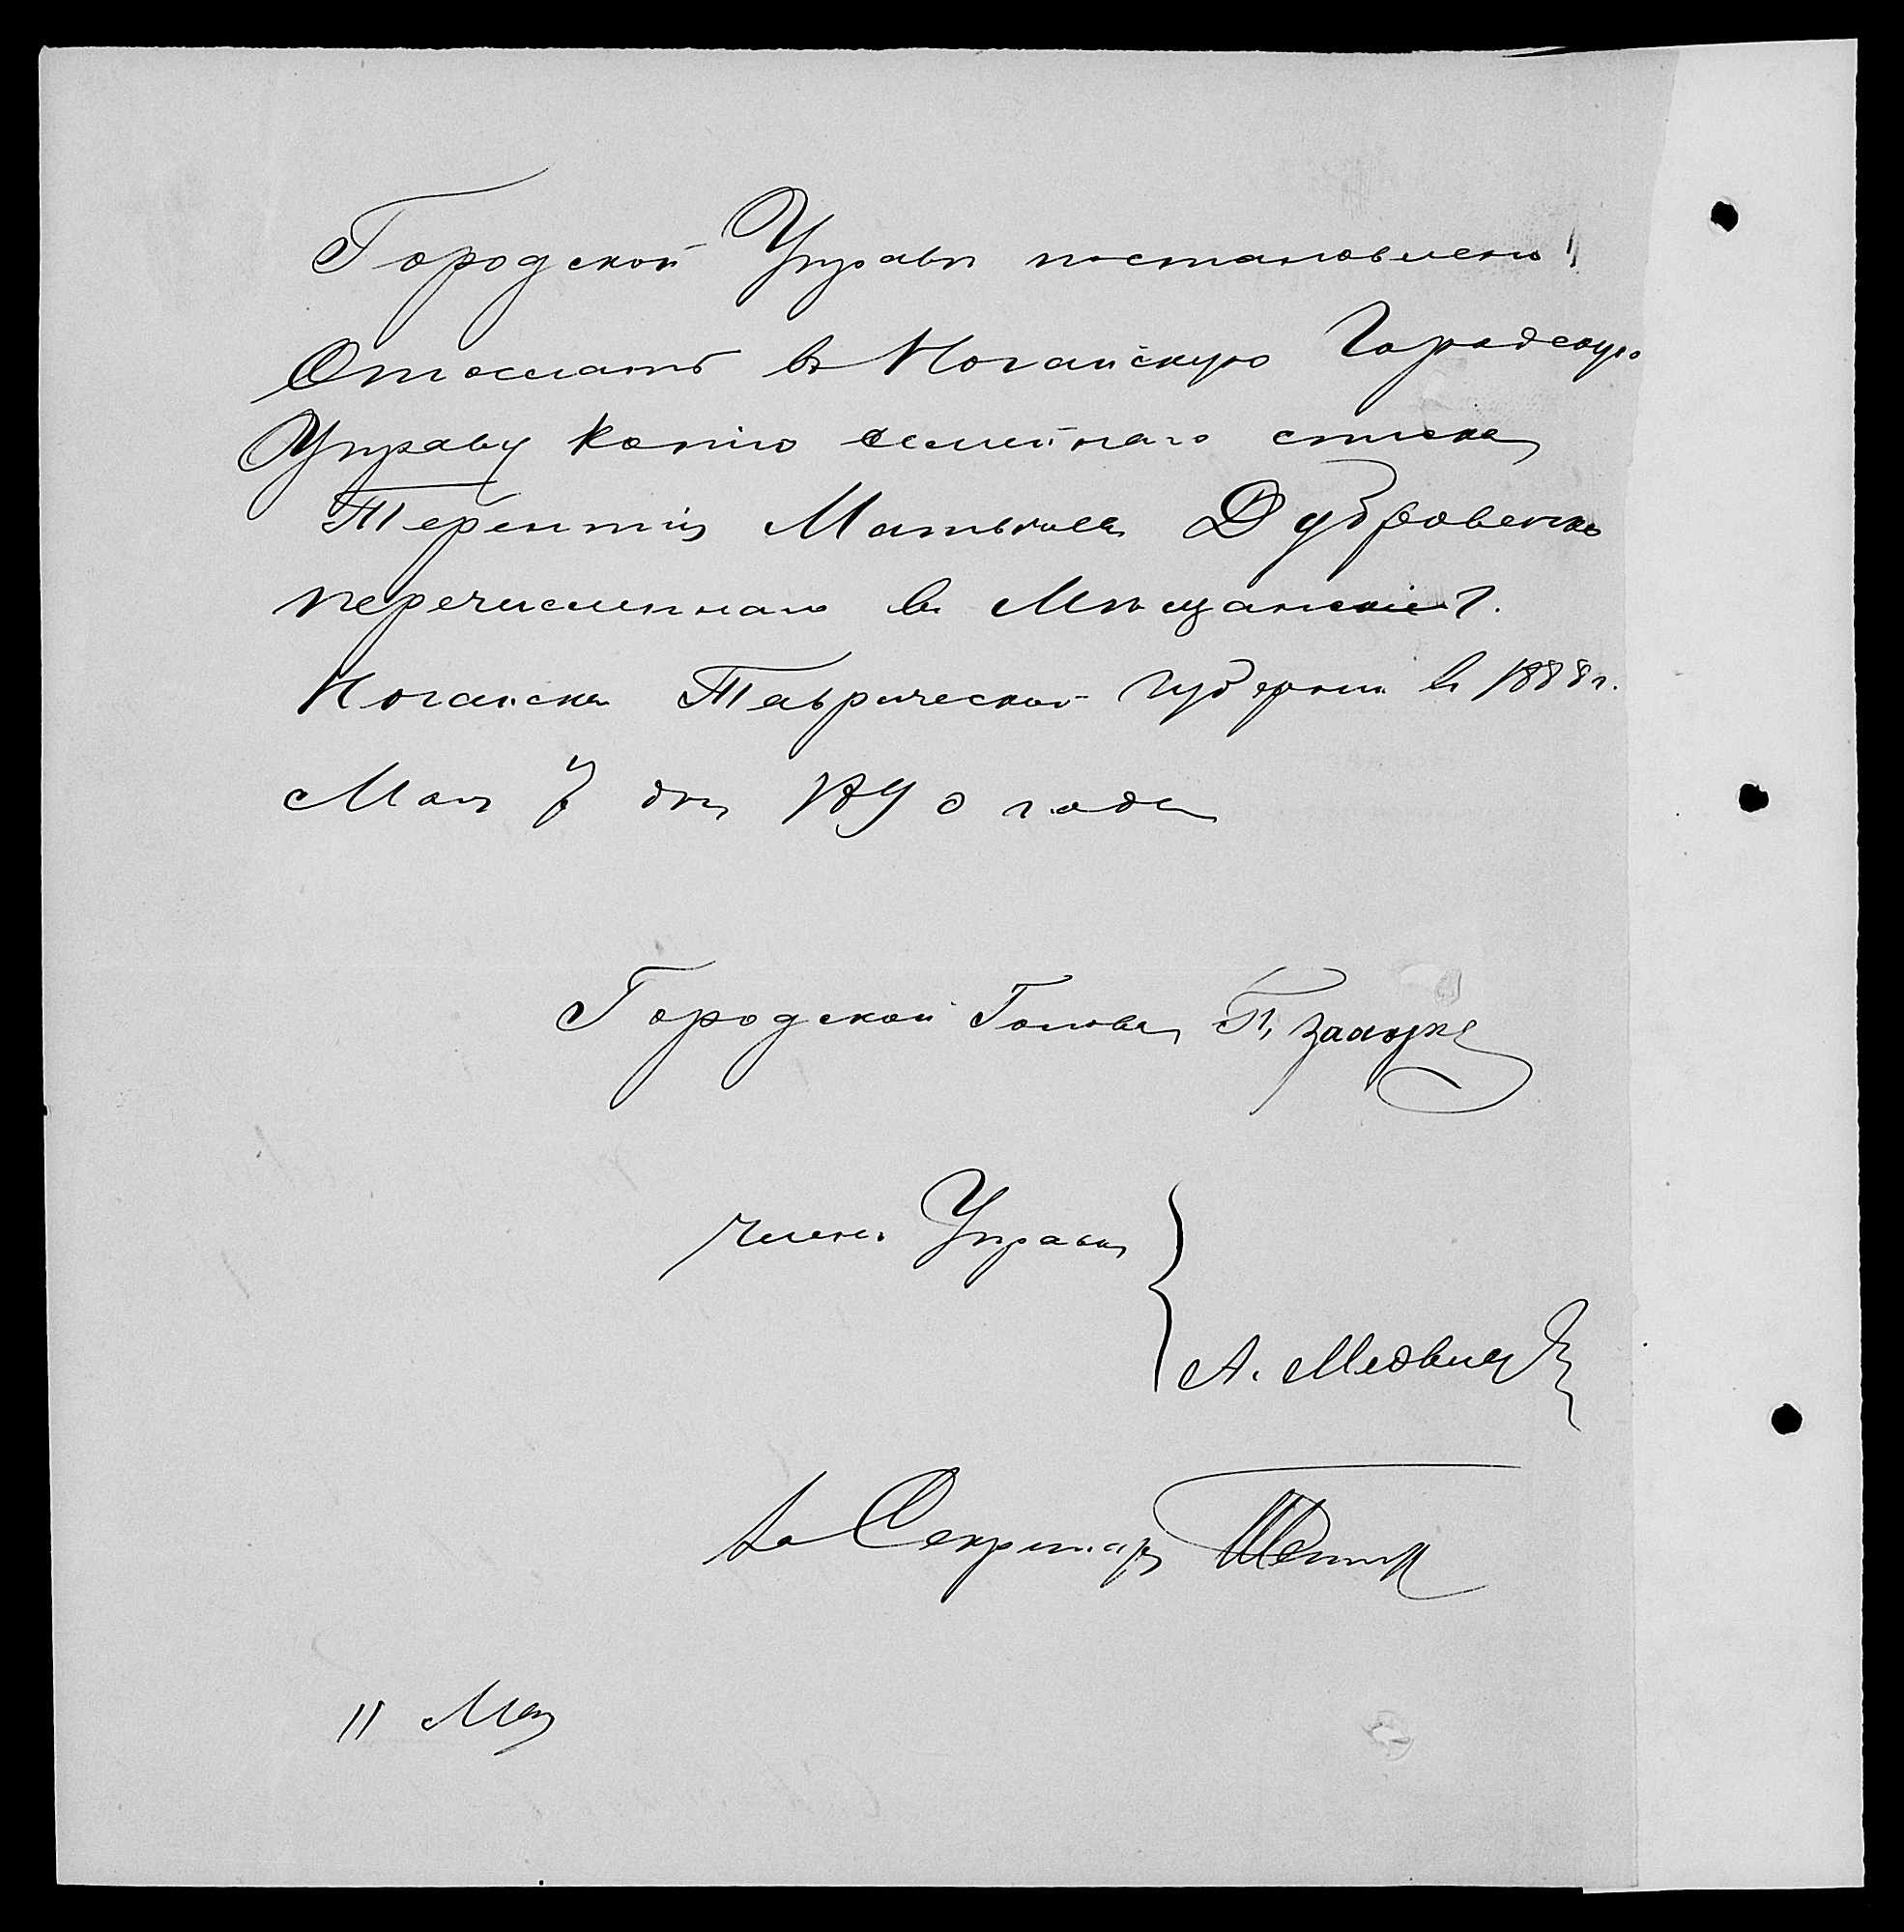 Городской Управѣ постановлено:
Отослать въ Ногайскую Городскую
Управу копію семейнаго списка
Терентія Матвѣева Дубровенко
перечисленнаго въ Мѣщанскіе г.
Ногайска Таврической губерніи въ 1888 г.
Мая 7 дня 1890 года
Городской Голова П.
Члены Управы
А.
За Секретаря
11 Мая